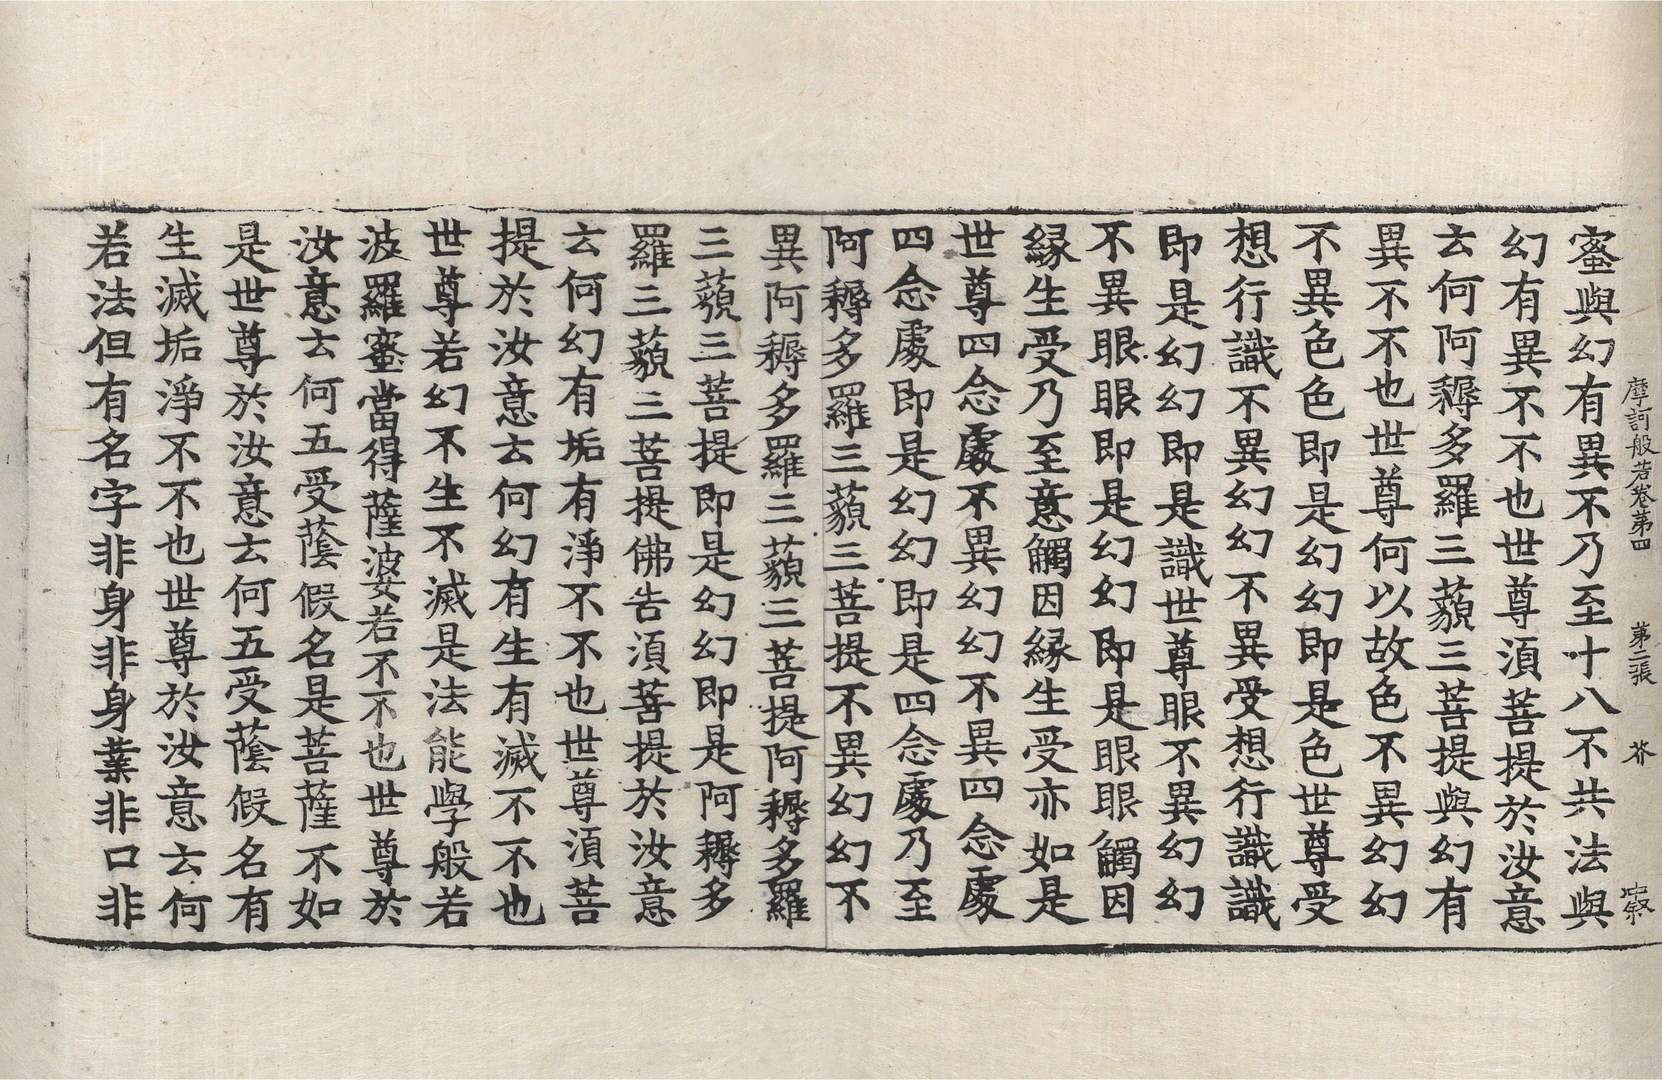 摩訶般若卷第四　第二張　芥　𡨥
蜜與幻有異不乃至十八不共法與
幻有異不不也世尊湏菩提於汝意
云何阿耨多羅三藐三菩提與幻有
異不不也世尊何以故色不異幻幻
不異色色即是幻幻即是色世尊受
想行識不異幻幻不異受想行識識
即是幻幻即是識世尊眼不異幻幻
不異眼眼即是幻幻即是眼眼觸因
緣生受乃至意觸因緣生受亦如是
世尊四念處不異幻幻不異四念處
四念處即是幻幻即是四念處乃至
阿耨多羅三藐三菩提不異幻幻不
異阿耨多羅三藐三菩提阿耨多羅
三藐三菩提即是幻幻即是阿耨多
羅三藐三菩提佛告湏菩提於汝意
云何幻有垢有淨不不也世尊湏菩
提於汝意云何幻有生有滅不不也
世尊若幻不生不滅是法能學般若
波羅蜜當得薩婆若不不也世尊於
汝意云何五受蔭假名是菩薩不如
是世尊於汝意云何五受蔭假名有
生滅垢淨不不也世尊於汝意云何
若法但有名字非身非身業非口非